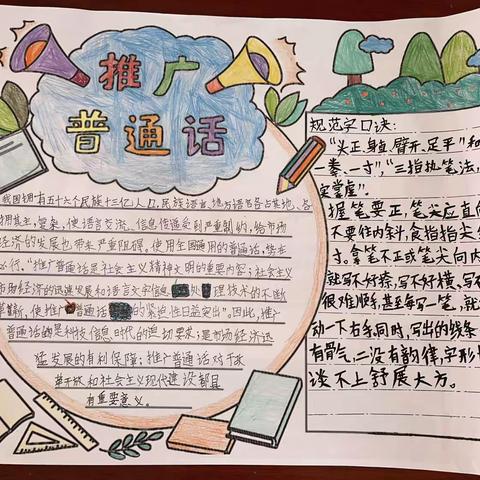 推广
普通话
我国拥有五十六个民族十三亿人口,民族语言、地方语言各占其地、各
拥其主,复杂,使语言交流、信息传递受到严重制约,给市场
经济的发展也带来严重阻碍。使用全国通用的普通话,势在
必行。“推广普通话是社会主义精神文明的重要内容;社会主义
市场经济的迅速发展和语言文字信息处理技术的不断
革新,使推广普通话的“紧迫性日益突出”。因此,推广
普通话的是科技信息时代的迫切要求;是市场经济迅
猛发展的有利保障;推广普通话对于改
革开放和社会主义现代建设都具
有重要意义。
规范字口诀:
“头正、身直、臂开、足平”和
一拳、一寸”,“三指执笔法,
实掌虚”。
握笔要正,笔尖应直向
不要往内斜,食指指尖
寸。拿笔不正或笔尖向内
就写不好捺,写不好横、写
很难顺手,甚至每写一笔,就
动一下右手,同时,写出的线条
有骨气,二没有韵律,字形
谈不上舒展大方。